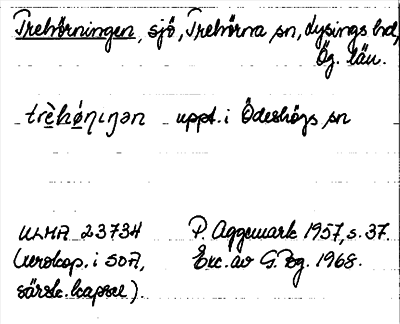 Trehörningen, sjö, Trehörna sn, Lysings hd,
Ög. län.
trèhǿṇıŋən uppt. i Ödeshögs sn
ULMA 23734 P. Aggemark 1957, s. 37.
(xerokop. i SOA, Exc. av G. Bg. 1968.
särsk. kapsel).